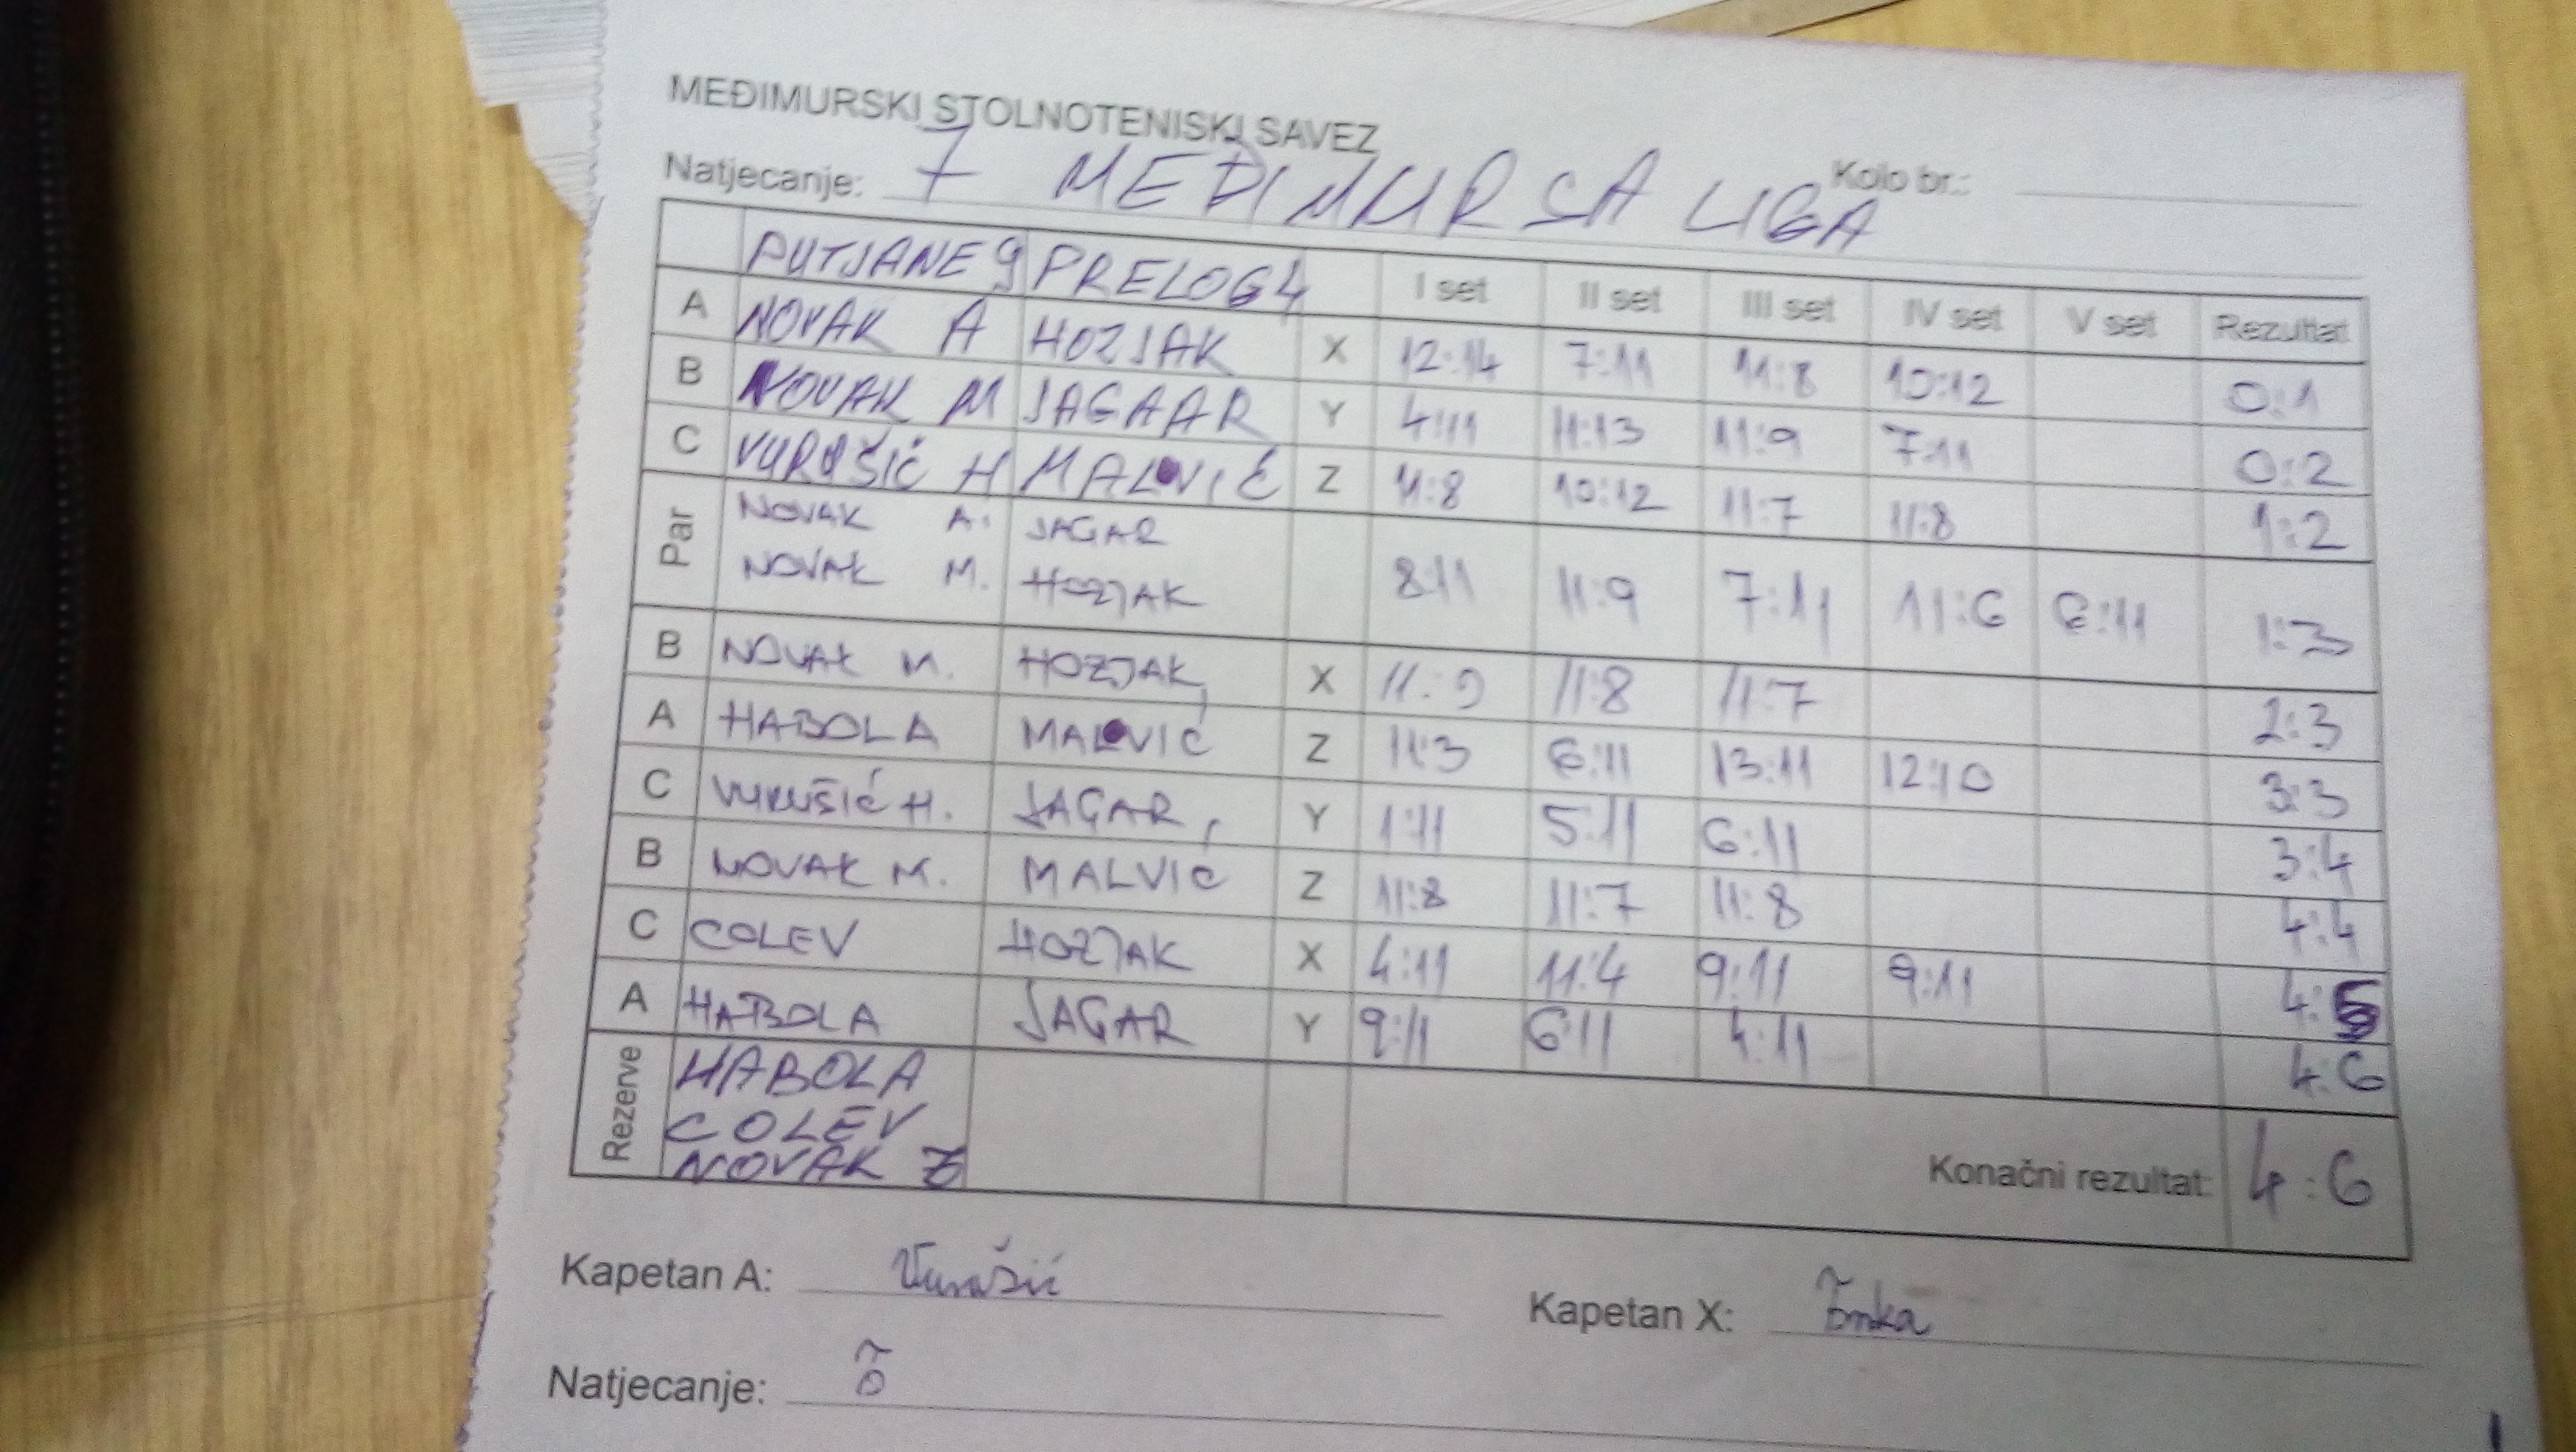 MEĐIMURSKI STOLNOTENISKI SAVEZ
Natjecanje: 7 MEĐIMURSA LIGA Kolo br.:
PUTJANE 9 PRELOG 4 I set II set III set IV set V set Rezultat
A NOVAK A HOZJAK X 12:14 7:11 11:8 10:12 0:1
B NOVAK M JAGAAR Y 4:11 11:13 11:9 7:11 0:2
C VURUŠIĆ H MALVIĆ Z 11:8 10:12 11:7 11:8 1:2
Par NOVAK A. JAGAR
NOVAK M. HOZJAK 8:11 11:9 7:11 11:6 6:11 1:3
B NOVAK M. HOZJAK X 11:9 11:8 11:7 2:3
A HABOLA MALVIĆ Z 11:3 6:11 13:11 12:10 3:3
C VURUŠIĆ H. JAGAR Y 1:11 5:11 6:11 3:4
B NOVAK M. MALVIĆ Z 11:8 11:7 11:8 4:4
C COLEV HOZJAK X 4:11 11:4 9:11 9:11 4:5
A HABOLA JAGAR Y 9:11 6:11 4:11 4:6
Rezerve HABOLA
COLEV
NOVAK Z
Konačni rezultat: 4:6
Kapetan A: Vurušić Kapetan X:
Natjecanje: